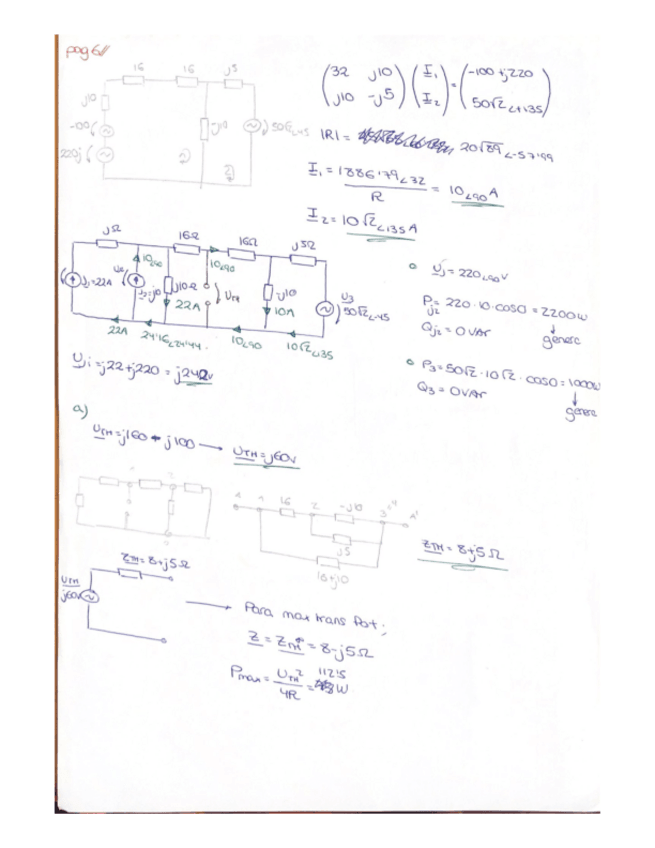 pag 6//
16 16 j5
j10
-j10
220j
50√2∠-45
(32 j10; j10 -j5) (I₁; I₂) = (-100+j220; 50√2∠+135)
|R| = 20√89∠-57'99
I₁ = 1886'79∠32 / R = 10∠90 A
I₂ = 10√2∠135 A
jΩ 16Ω 16Ω j5Ω
10∠90 10∠90
j10Ω U_TH -j10 U3
22A 10A 50√2∠-45
22A 24'16∠24'44. 10∠90 10√2∠135
Uj = 220∠90 V
Pj2 = 220·10·cos0 = 2200 W
Qj2 = 0 VAr generc
P3 = 50√2·10√2·cos0 = 1000W
Q3 = 0 VAr
generc
Uj1 = j22 + j220 = j242V
a)
U_TH = j160 - j100 → U_TH = j60V
16 2 -j10
j5
10+j10
Z_TH = 8+j5Ω
Z_TH = 8+j5Ω
U_TH
j60V
Para max trans Pot;
Z = Z_TH* = 8-j5Ω
Pmax = U_TH² / 4R = 112'5 W